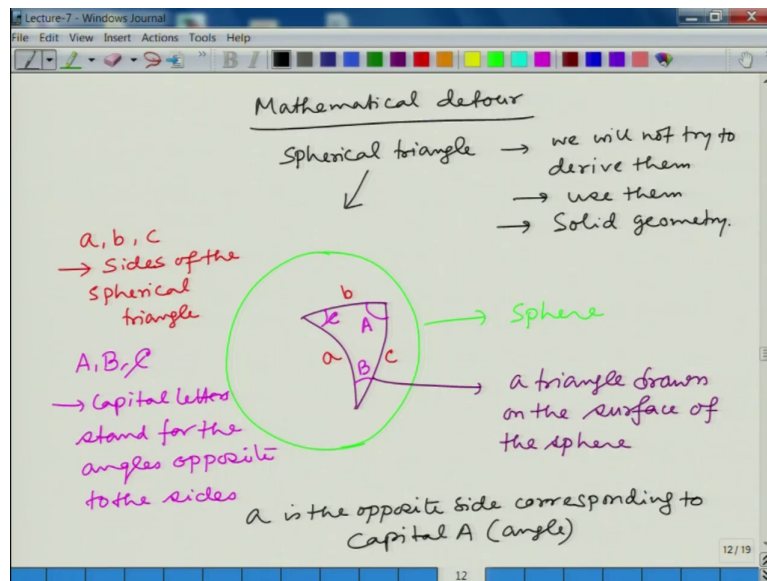 Lecture-7 - Windows Journal
File Edit View Insert Actions Tools Help
B I
Mathematical detour
Spherical triangle → we will not try to
derive them
→ use them
→ Solid geometry.
a, b, c
→ Sides of the
spherical
triangle
b
C A
a B c
→ Sphere
A, B, C
→ Capital letters
stand for the
angles opposite
to the sides
→ a triangle drawn
on the surface of
the sphere
a is the opposite side corresponding to
Capital A (angle)
12/19
12